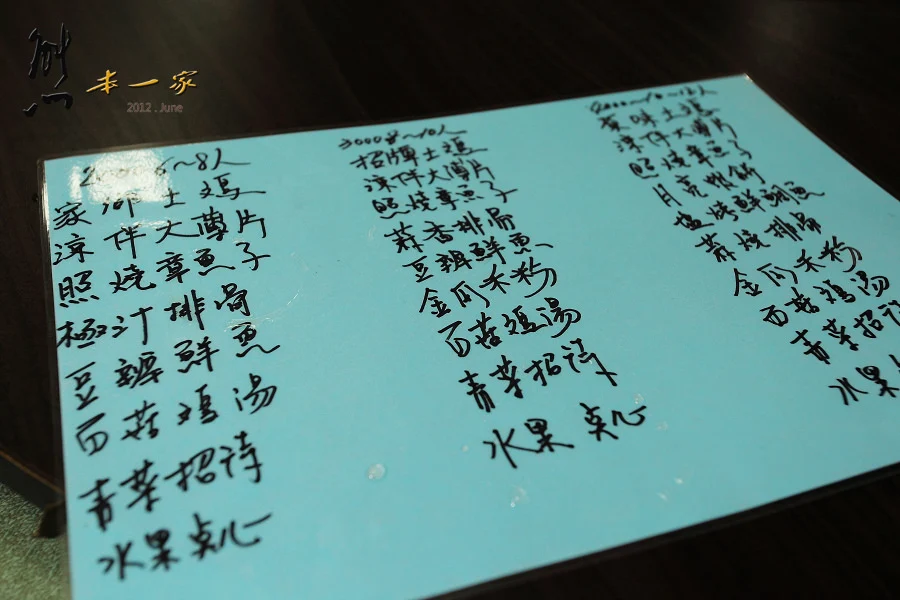 熊
本一家
2012 . June
2000 6~8人
家鄉土鸡
涼伴大薄片
照燒章魚子
極汁排骨
豆瓣鮮魚
百菇鸡湯
青菜招待
水果点心
3000 8~10人
招牌土鸡
涼伴大薄片
照燒章魚子
蒜香排骨
豆瓣鮮魚
金瓜米粉
百菇鸡湯
青菜招待
水果点心
4000~10~12人
家味土鸡
涼伴大薄片
照燒章魚子
月亮蝦餅
塩烤鮮鯛魚
蒜燒排骨
金瓜米粉
百菇鸡湯
青菜招待
水果